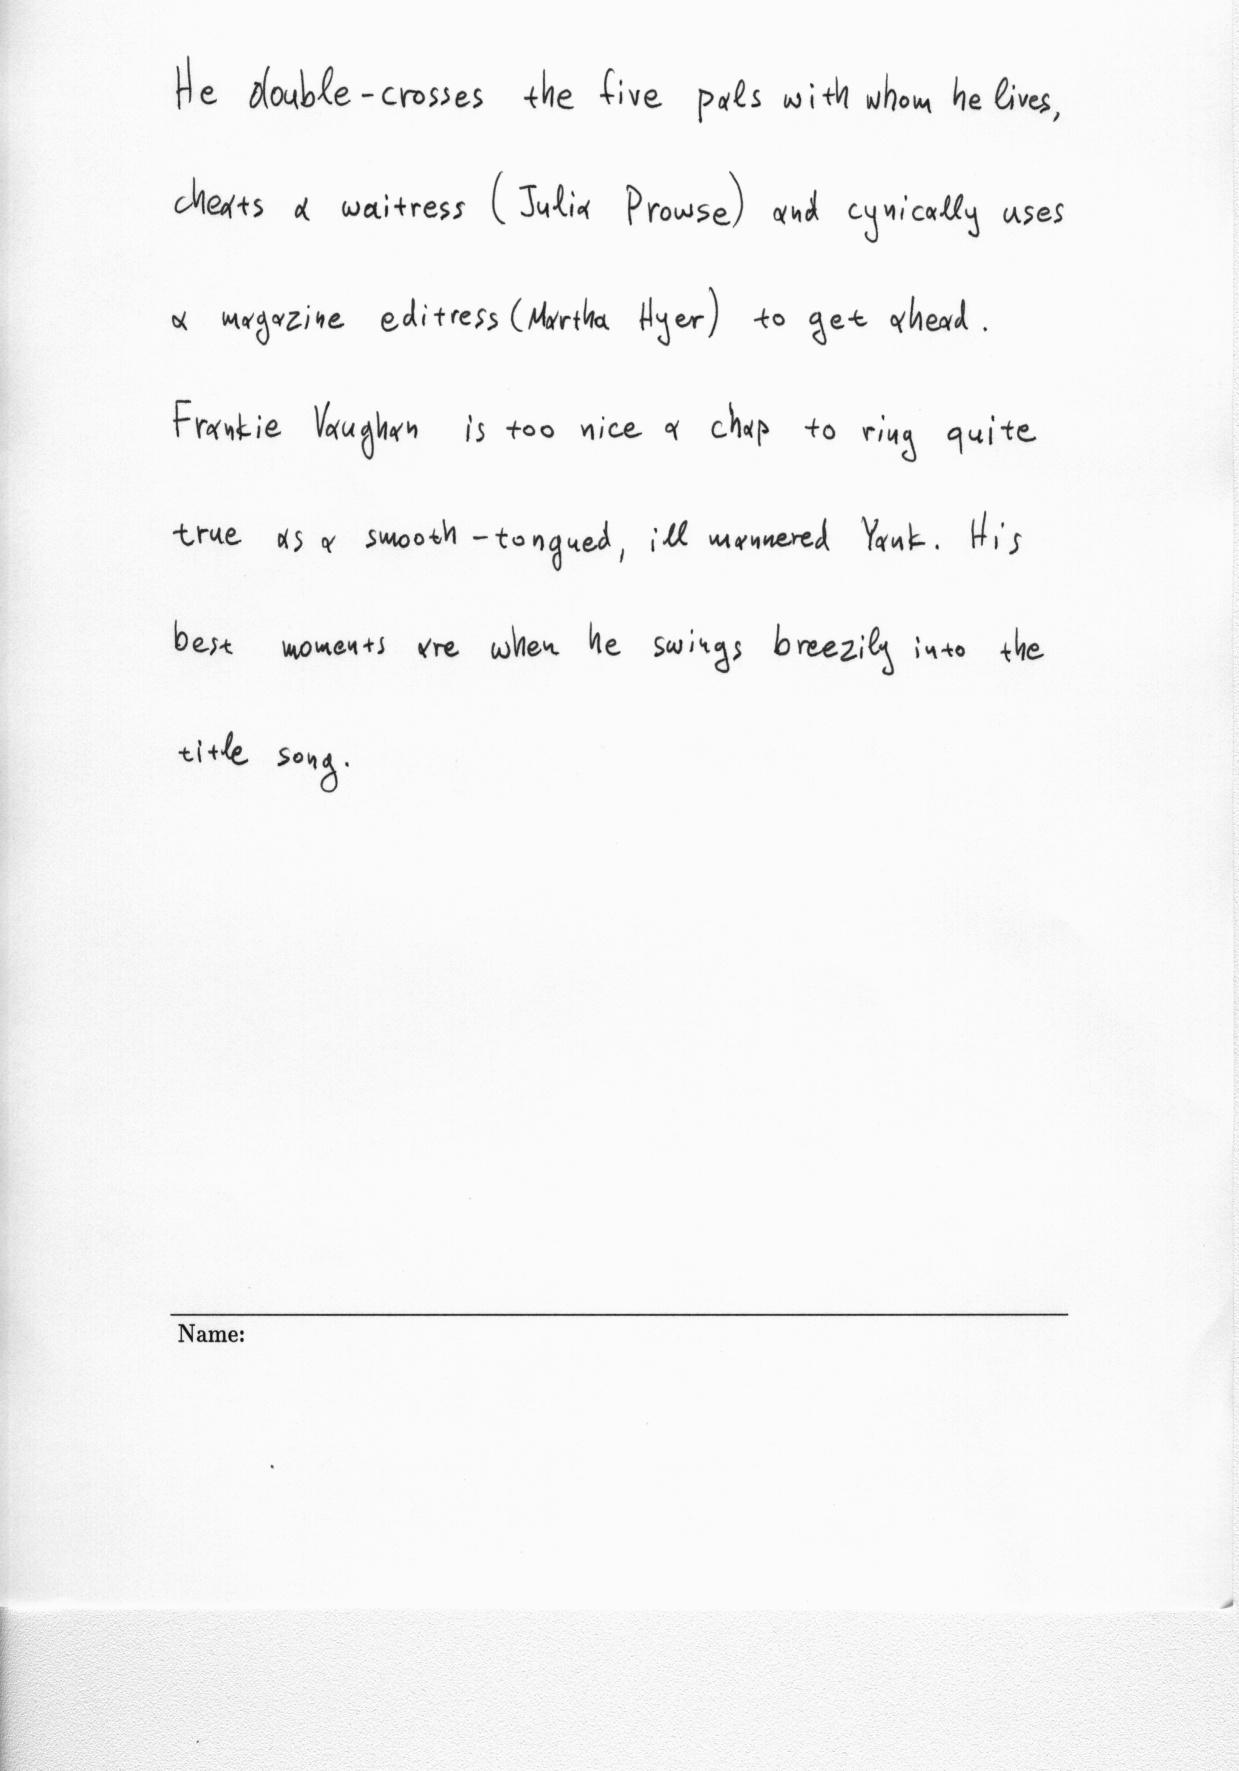 He double-crosses the five pals with whom he lives,
cheats a waitress (Julia Prowse) and cynically uses
a magazine editress (Martha Hyer) to get ahead.
Frankie Vaughan is too nice a chap to ring quite
true as a smooth-tongued, ill mannered Yank. His
best moments are when he swings breezily into the
title song.
Name: